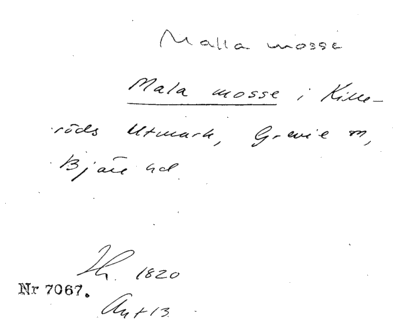 Malla mosse
Mala mosse i Kille-
röds Utmark, Grevie sn,
Bjäre hd.
1820
Nr 7067.
Akt 13.